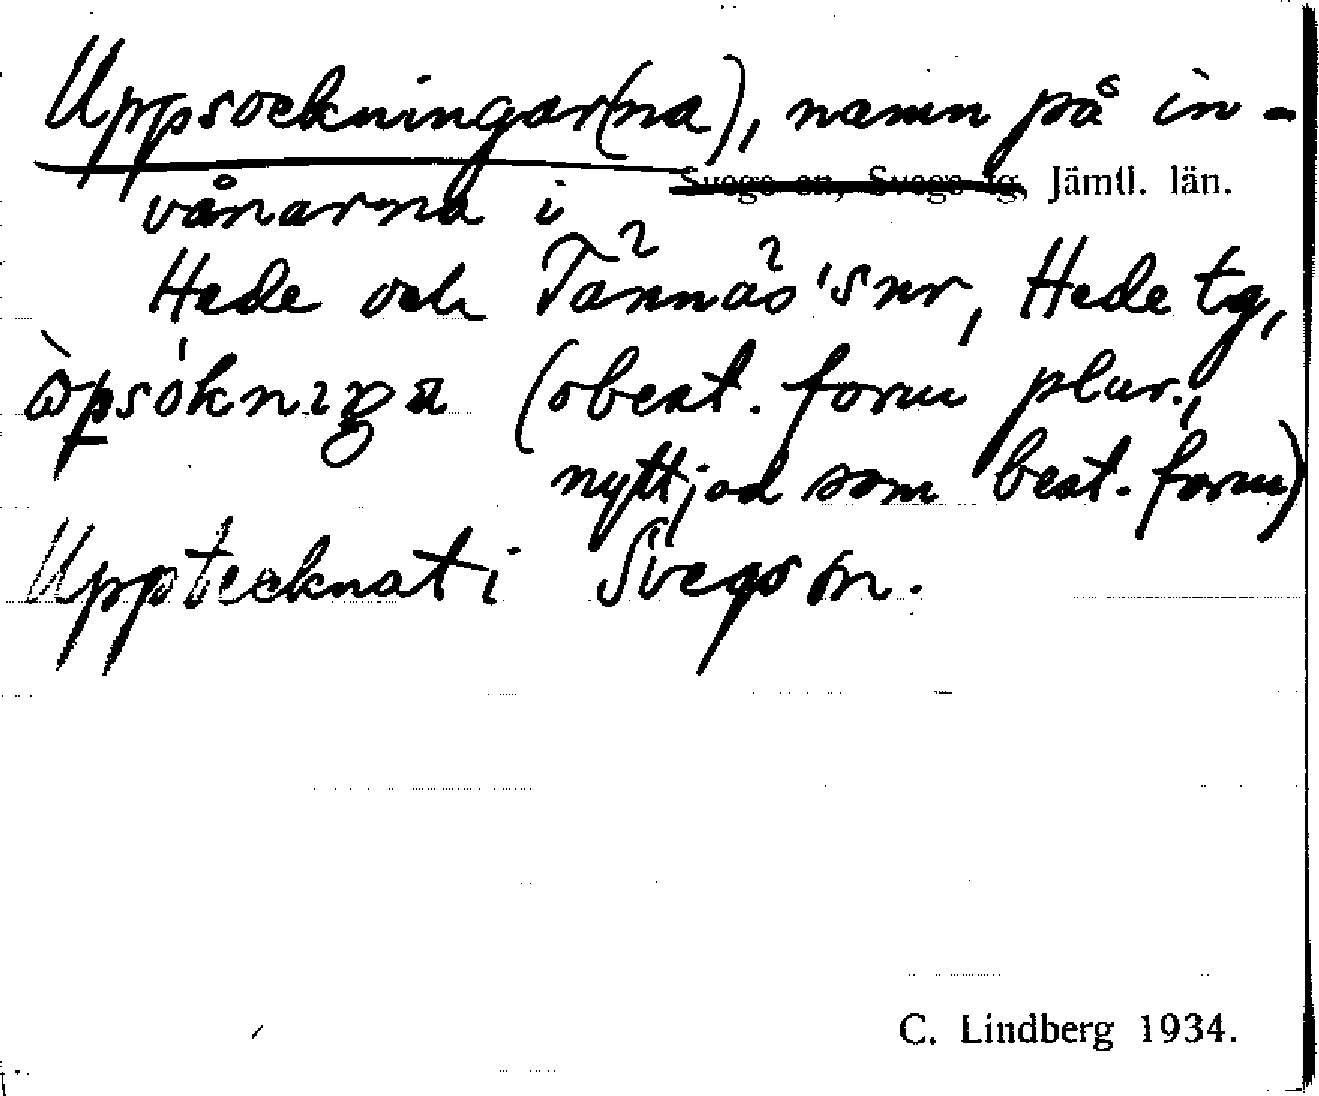 Uppsockningar(na), namn på in-
~~Svegs sn, Svegs tg,~~ Jämtl. län.
vånarna i
Hede och Tännäs' snr, Hede tg,
(obest. form plur.,
nyttjad som best. form)
Upptecknat i Svegs sn.
C. Lindberg 1934.